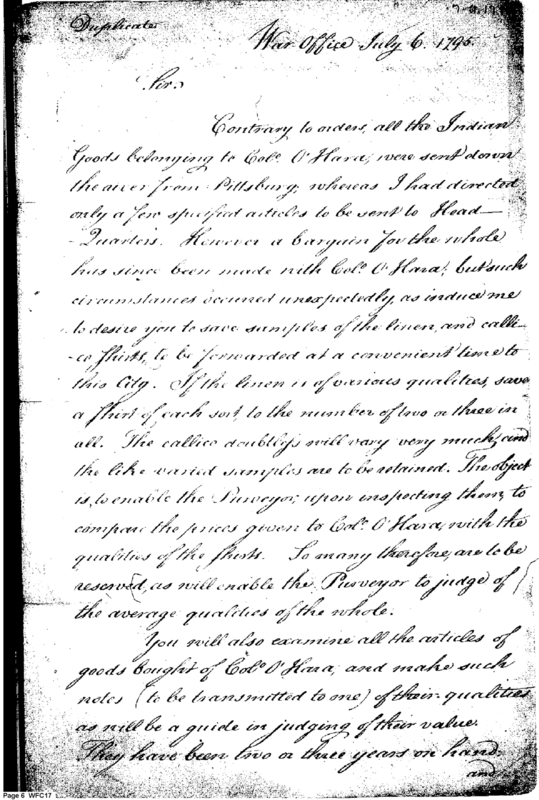 Duplicate
War Office July 6. 1795.
Sir,
Contrary to orders, all the Indian
Goods belonging to Colo. O'Hara, were sent down
the river from Pittsburg; whereas I had directed
only a few specified articles to be sent to Head-
-Quarters. However a bargain for the whole
has since been made with Colo. O'Hara; but such
circumstances occured unexpectedly, as induce me
to desire you to save samples of the linen, and calli-
-co shirts, to be forwarded at a convenient time to
this City. If the linen is of various qualities, save
a shirt of each sort, to the number of two or three in
all. The callico doubtless will vary very much, and
the like varied samples are to be retained. The object
is, to enable the Purveyor, upon inspecting them, to
compare the prices given to Colo. O'Hara, with the
qualities of the shirts. So many therefore, are to be
reserved, as will enable the Purveyor to judge of
the average qualities of the whole.
You will also examine all the articles of
goods bought of Colo. O'Hara, and make such
notes (to be transmitted to me) of their qualities
as will be a guide in judging of their value.
They have been two or three years on hand
and
Page 6 WFC17